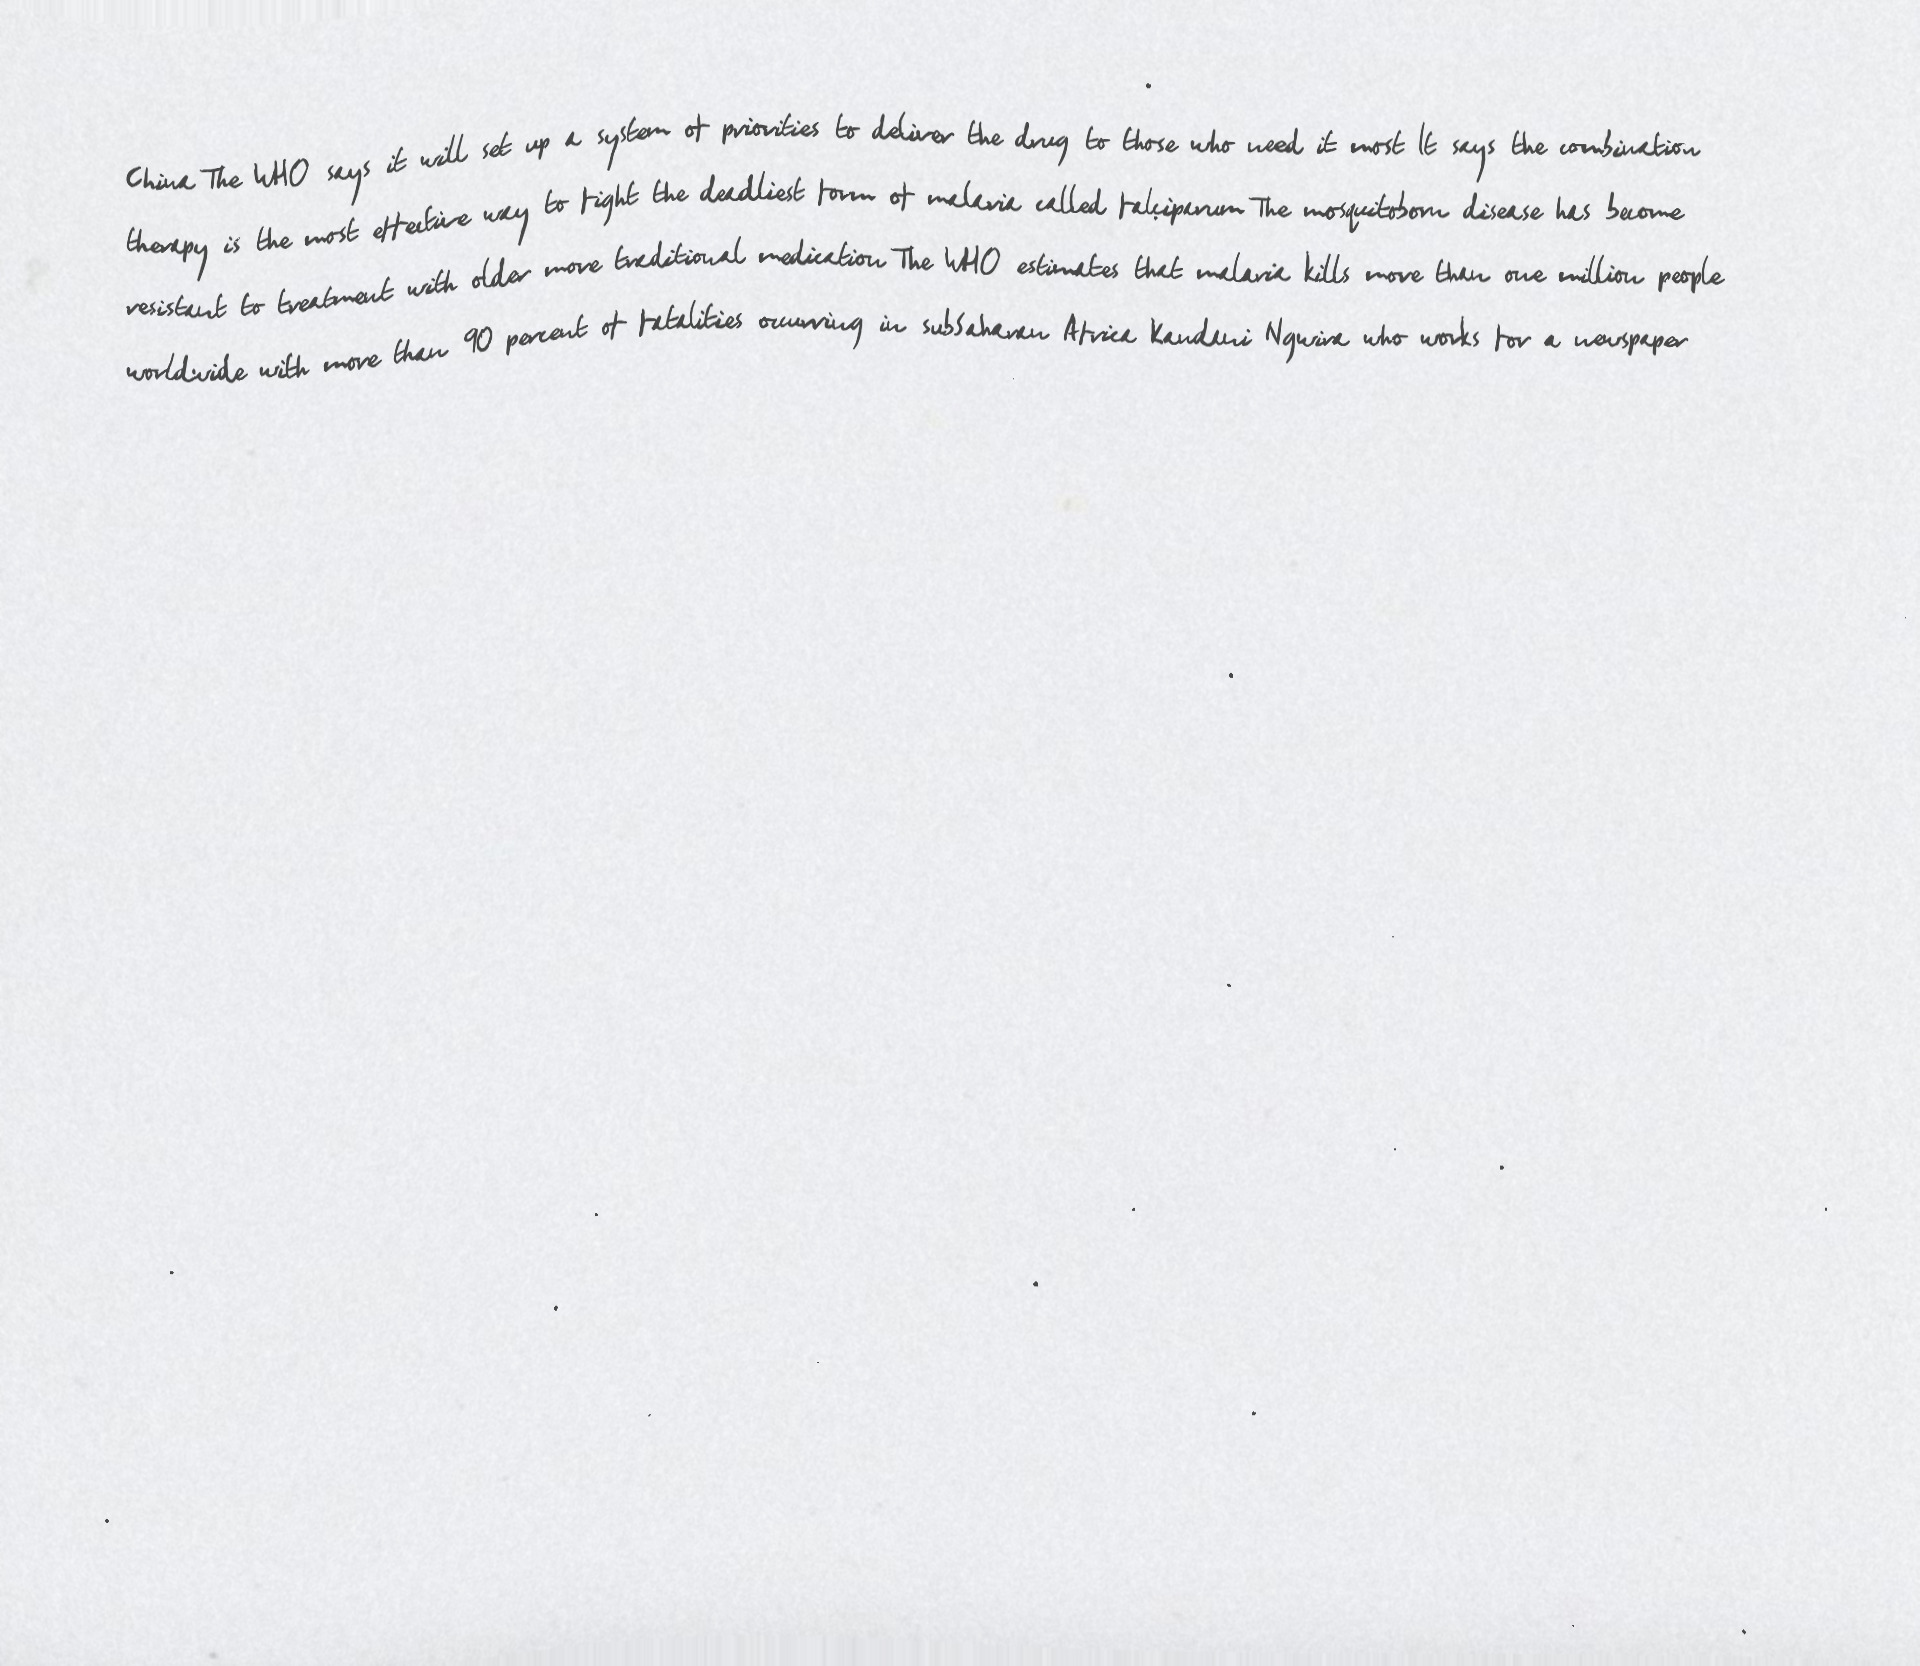 China The WHO says it will set up a system of priorities to deliver the drug to those who need it most It says the combination
therapy is the most effective way to fight the deadliest form of malaria called falciparum The mosquitoborn disease has become
resistant to treatment with older more traditional medication The WHO estimates that malaria kills more than one million people
worldwide with more than 90 percent of fatalities occurring in subSaharan Africa Kandani Ngwira who works for a newspaper